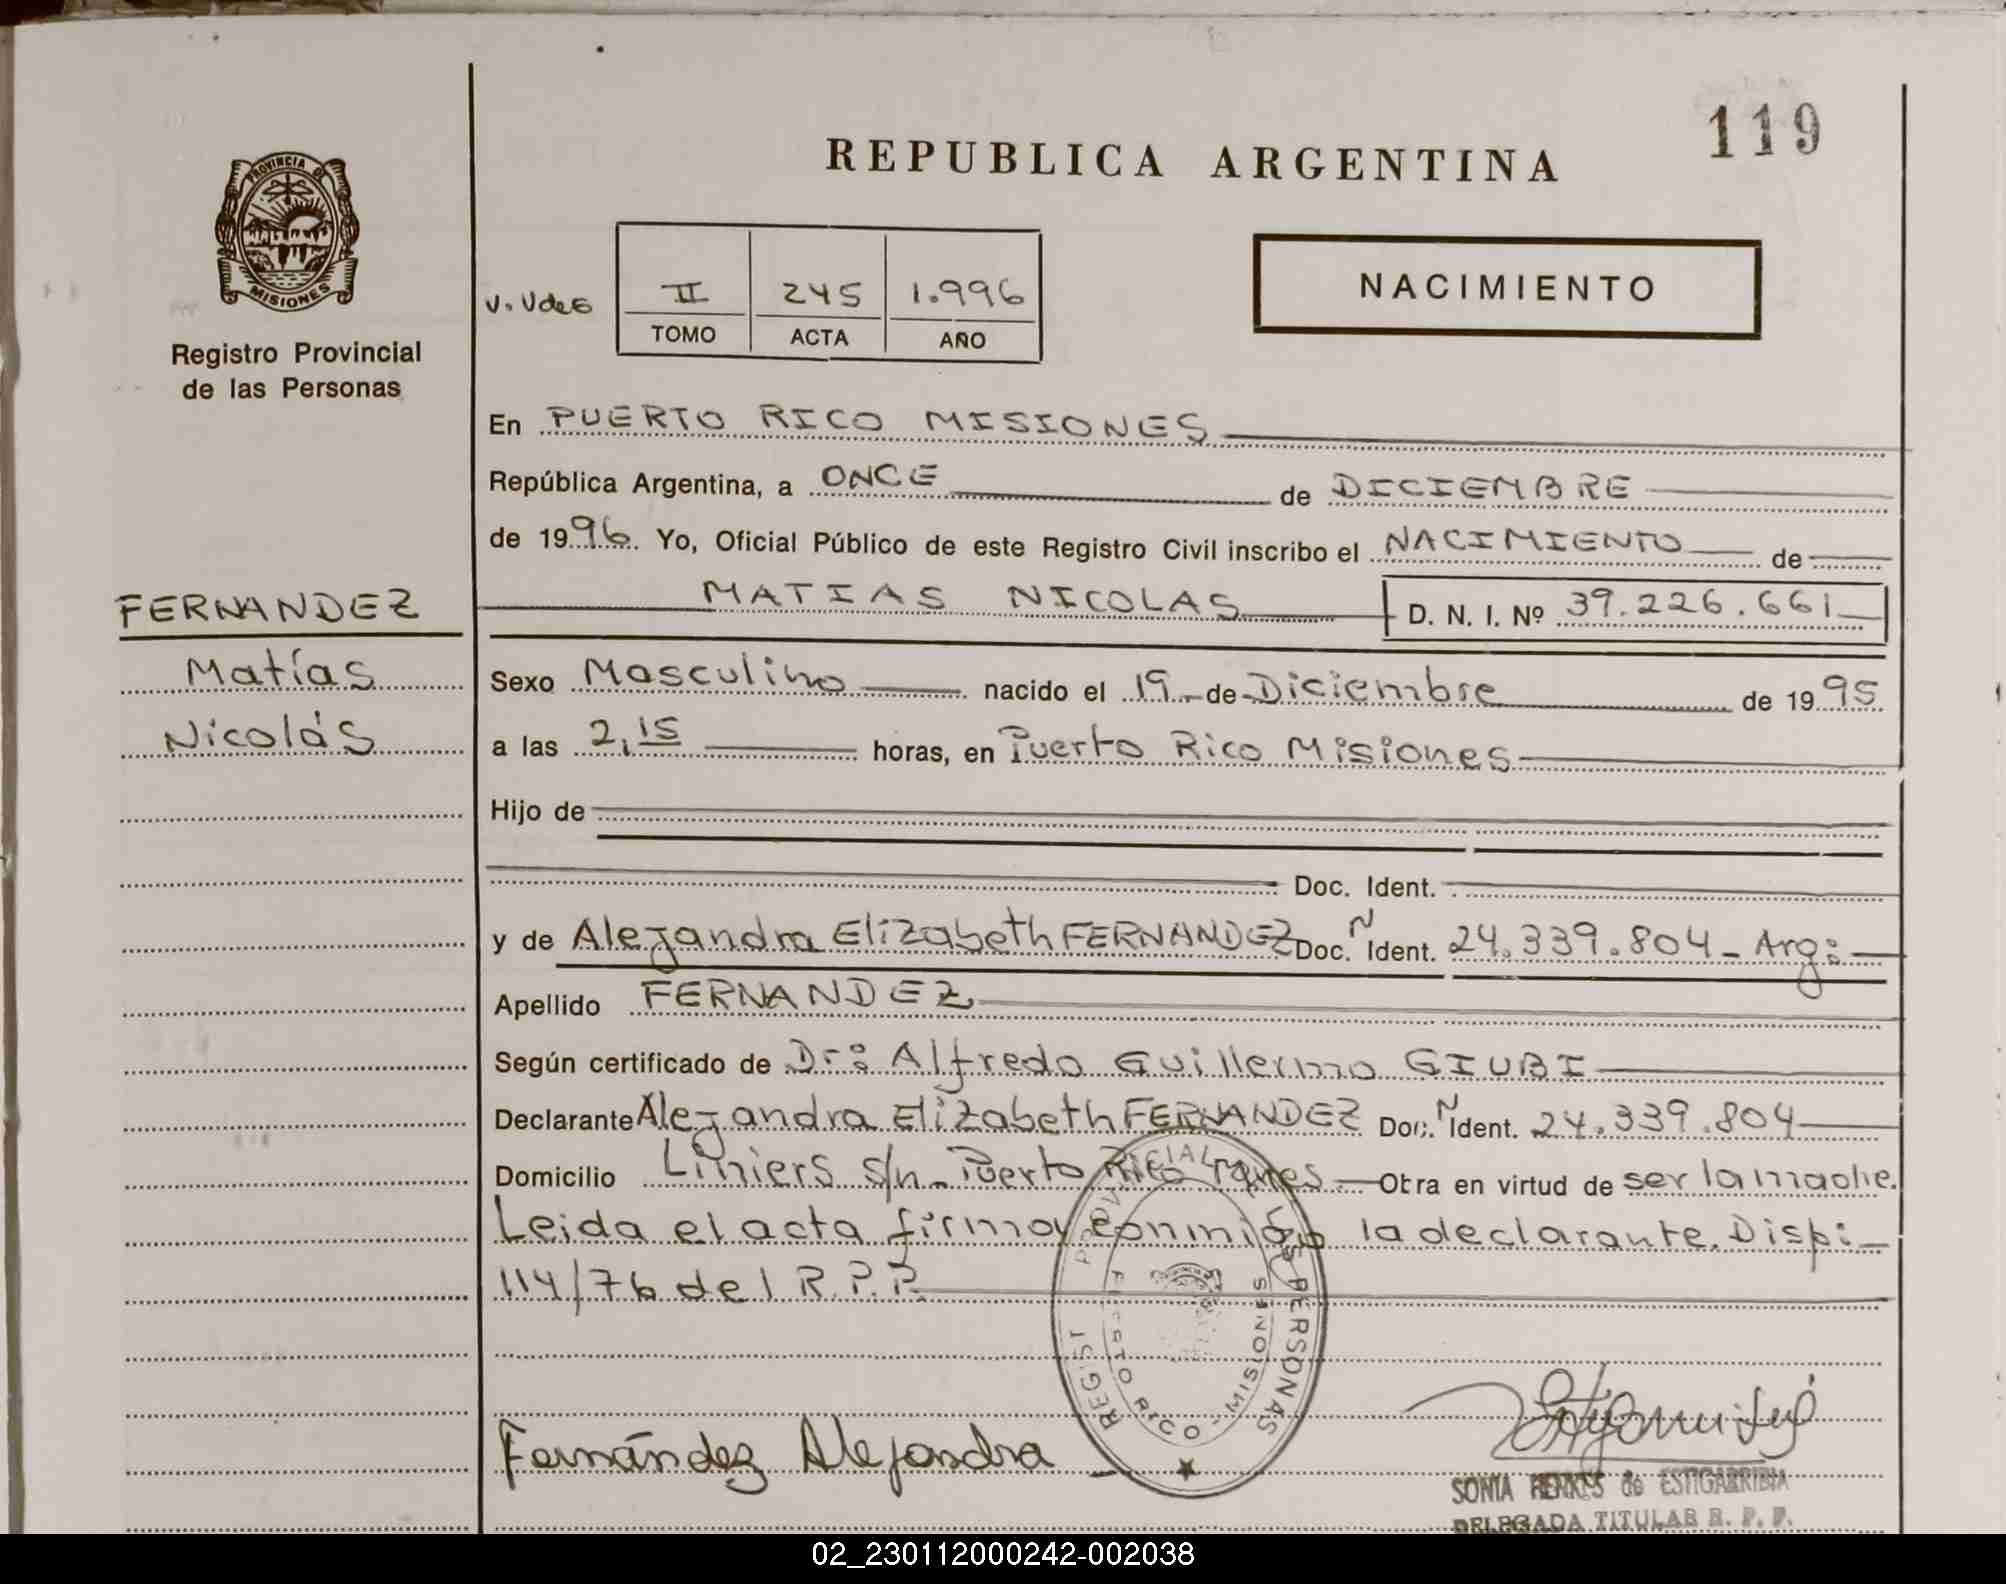 119
REPUBLICA ARGENTINA
PROVINCIA DE
MISIONES
Registro Provincial
de las Personas
NACIMIENTO
II 245 1.996
TOMO ACTA AÑO
En PUERTO RICO MISIONES
República Argentina, a ONCE de DICIEMBRE
de 1996. Yo, Oficial Público de este Registro Civil inscribo el NACIMIENTO de
MATIAS NICOLAS D. N. I. Nº 39.226.661
FERNANDEZ
Matías
Nicolás
Sexo Masculino nacido el 19 de Diciembre de 1995
a las 2,15 horas, en Puerto Rico Misiones
Hijo de
Doc. Ident.
y de Alejandra Elizabeth FERNANDEZ Doc. Ñ Ident. 24.339.804 - Arg:
Apellido FERNANDEZ
Según certificado de Dr: Alfredo Guillermo GIUBI
Declarante Alejandra Elizabeth FERNANDEZ Doc. Ñ Ident. 24.339.804
Domicilio Liniers s/n - Puerto Rico Mnes. Otra en virtud de ser la madre.
Leida el acta firma conmigo la declarante. Disp:
114/76 del R.P.P.
REGIST PROVINCIAL PERSONAS
PUERTO RICO - MISIONES
Fernández Alejandra
SONIA de ESTIGARRIBIA
DELEGADA TITULAR R. P. P.
02_230112000242-002038